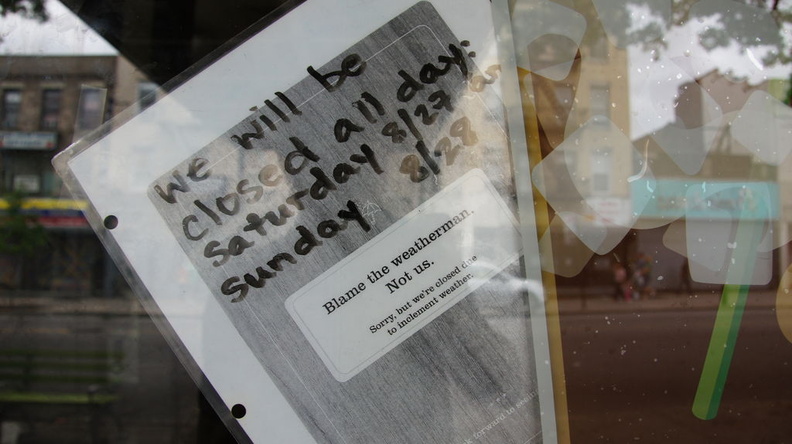 we will be
closed all day:
saturday 8/27 an
sunday 8/28
Blame the weatherman.
Not us.
Sorry, but we're closed due
to inclement weather.
forward to